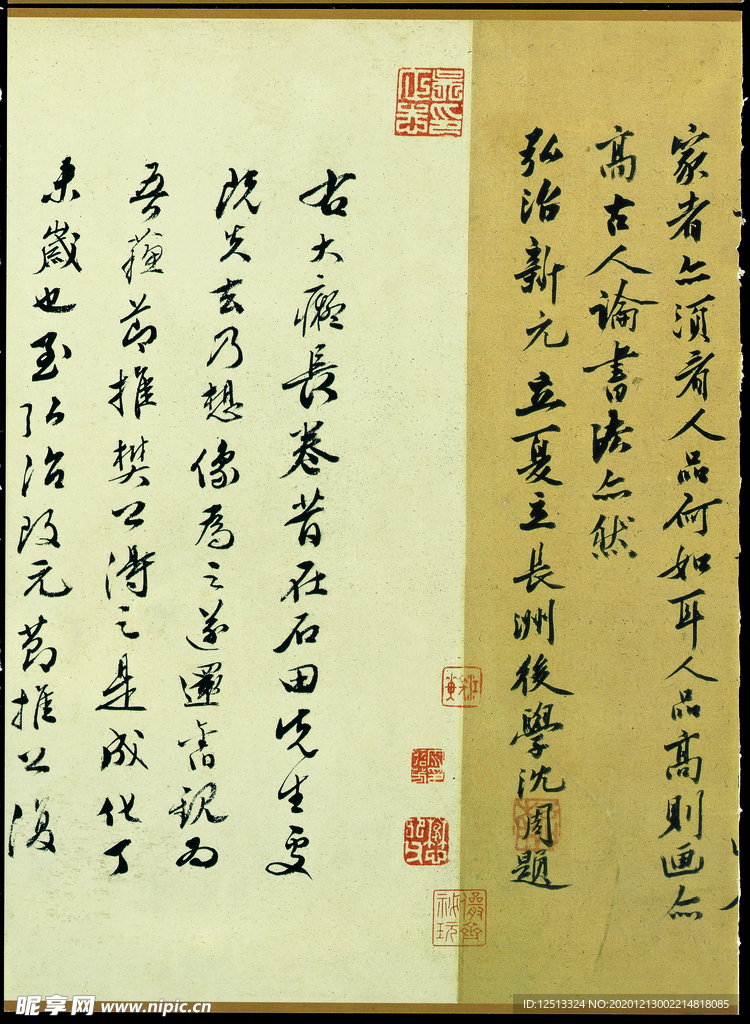 家者亦須看人品何如耳人品高則画亦
高古人論書法亦然
弘治新元立夏立長洲後學沈周題
右大癡長卷昔在石田先生處
既失去乃想像為之遂還舊觀為
吾蘇節推樊公得之是成化丁
未歲也至弘治改元節推公復
儼齋秘玩
昵享网 www.nipic.cn
ID:12513324 NO:20201213002214818085